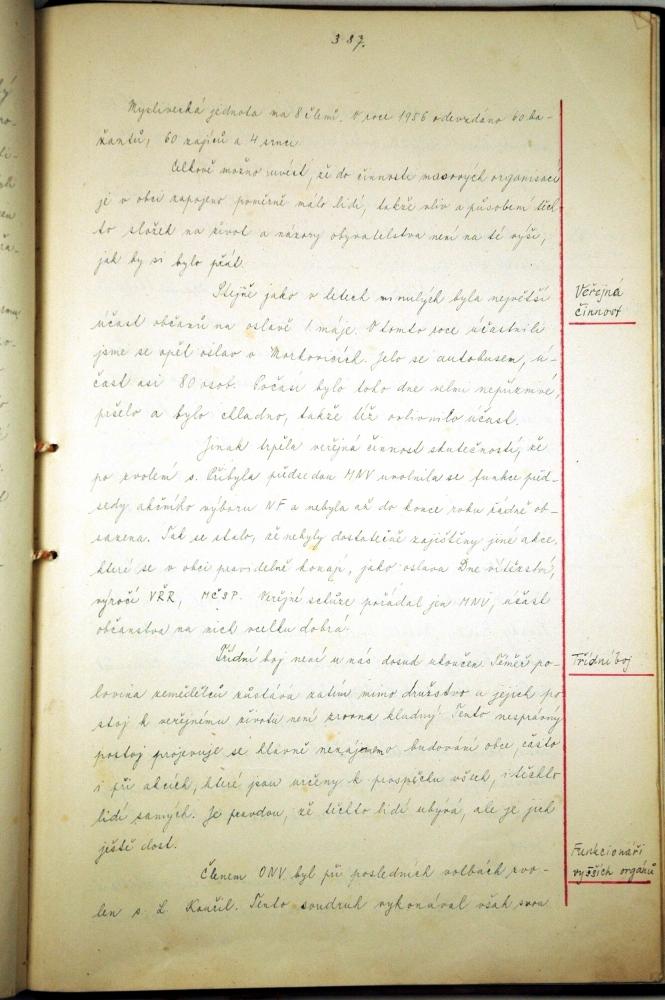 387.
Myslivecká jednota má 8 členů. V roce 1956 odevzdáno 60 ba-
žantů, 60 zajíců a 4 srnce
Celkově možno uvést, že do činnosti masových organisací
je v obci zapojeno poměrně málo lidí, takže vliv a působení těch-
to složek na život a názory obyvatelstva není na té výši,
jak by si bylo přát.
Stejně jako v letech minulých byla největší
účast občanů na oslavě 1. máje. V tomto roce účastnili
jsme se opět oslav v Morkovicích. Jelo se autobusem, ú-
čast asi 80 osob. Počasí bylo toho dne velmi nepříznivé,
pršelo a bylo chladno, takže též ovlivnilo účast.
Jinak trpěla veřejná činnost skutečností, že
po zvolení s. Přibyla předsedou MNV uvolnila se funkce před-
sedy akčního výboru NF a nebyla až do konce roku řádně ob-
sazena. Tak se stalo, že nebyly dostatečně zajištěny jiné akce,
které se v obci pravidelně konají, jako oslava Dne vítězství,
výročí VŘR, MČSP. Veřejné schůze pořádal jen MNV, účast
občanstva na nich vcelku dobrá.
Třídní boj není u nás dosud ukončen. Téměř po-
lovina zemědělců zůstává zatím mimo družstvo a jejich po
stoj k veřejnému životu není zrovna kladný. Tento nesprávný
postoj projevuje se hlavně nezájmem o budování obce, často
i při akcích, které jsou určeny k prospěchu všech, i těchto
lidí samých. Je pravdou, že těchto lidí ubývá, ale je jich
ještě dost.
Členem ONV byl při posledních volbách zvo-
len s. L. Koučil. Tento soudruh vykonával však svou
Veřejná
činnost
Třídní boj
Funkcionáři
vyšších orgánů